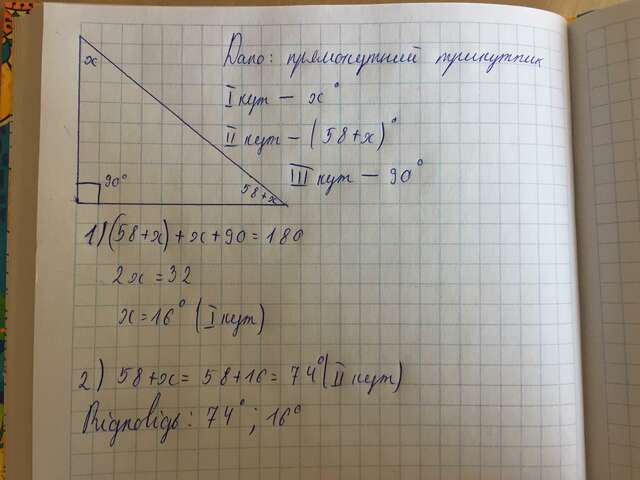 x
90°
58+x
Дано: прямокутний трикутник
I кут — x°
II кут — (58+x)°
III кут — 90°
1) (58+x)+x+90=180
2x=32
x=16° (I кут)
2) 58+x= 58+16= 74° (II кут)
Відповідь: 74°; 16°